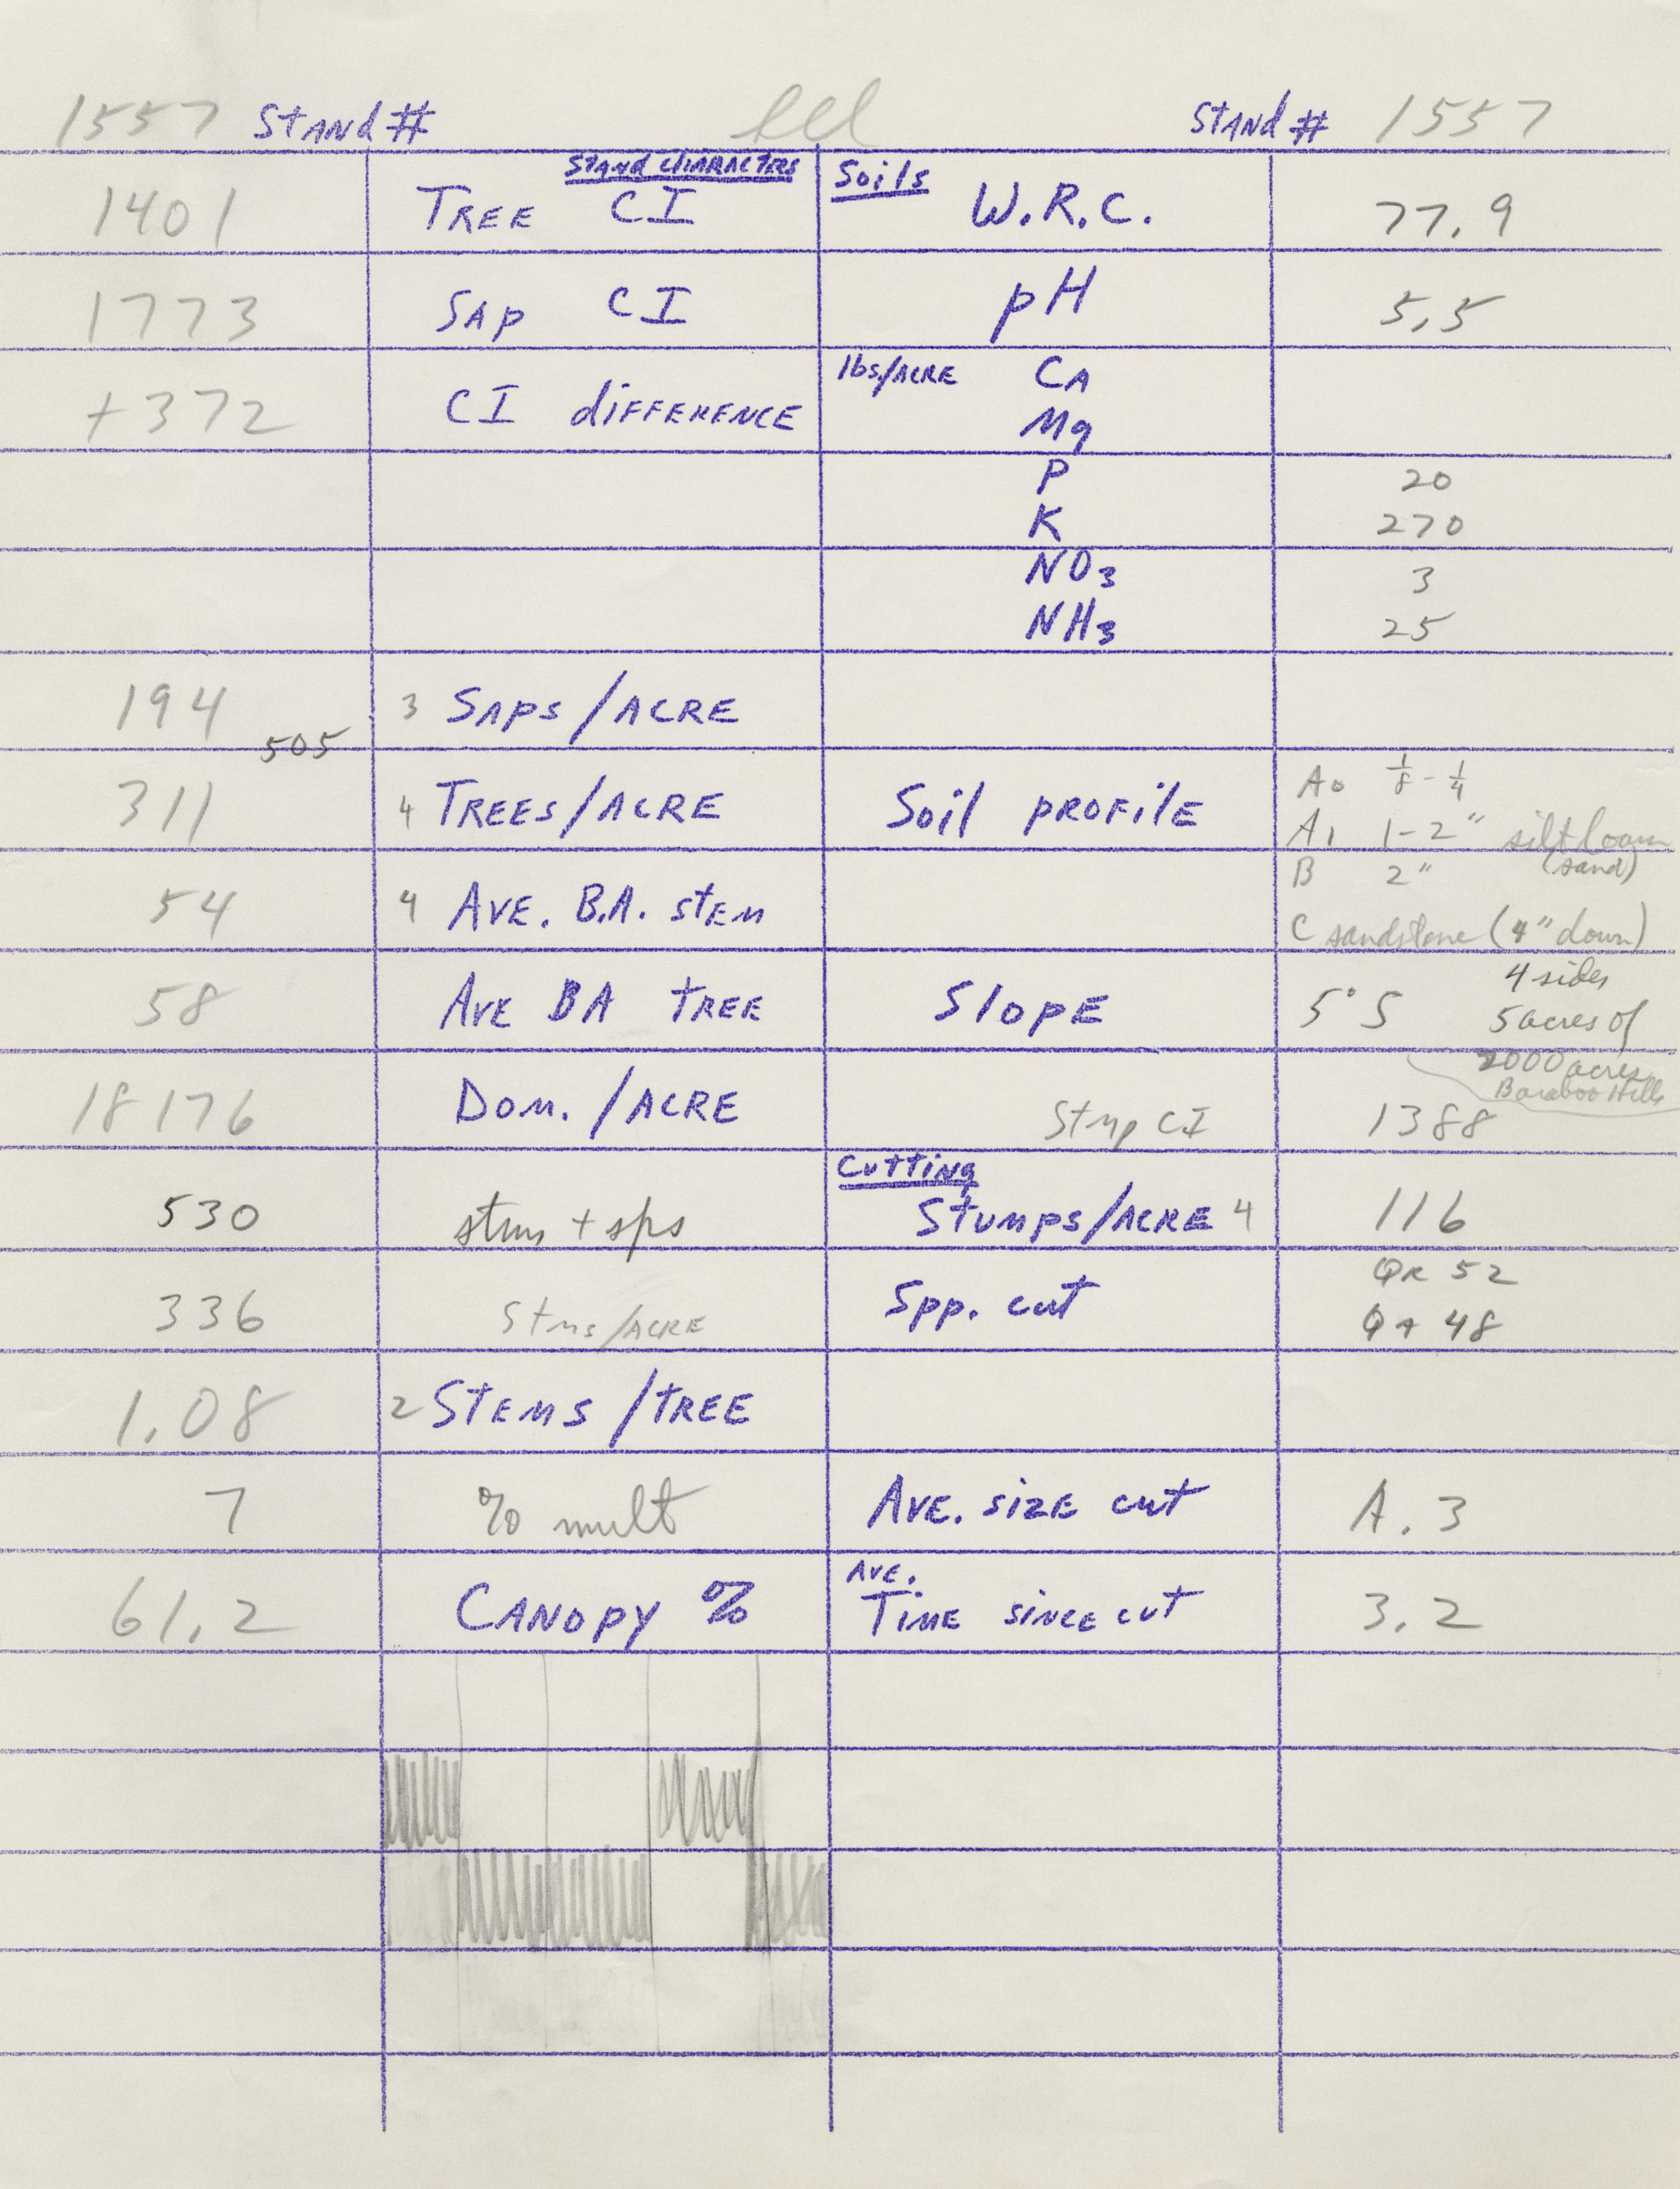 1557 Stand # Stand # 1557
Stand Characters Soils
1401 Tree CI W.R.C. 77.9
1773 Sap CI pH 5.5
+372 CI difference lbs/acre Ca
Mg
P 20
K 270
NO3 3
NH3 25
194 3 Saps/acre
505
311 4 Trees/acre Soil profile A0 1/8 - 1/4
A1 1-2" silt loam
B 2" (sand)
54 4 Ave. B.A. stem C sandstone (4" down)
58 Ave BA tree Slope 5° S 4 sides
5 acres of
2000 acres
Baraboo Hills
18176 Dom./acre Stmp CI 1388
Cutting
530 stms + sps Stumps/acre 4 116
336 Stms/acre Spp. cut QR 52
QA 48
1.08 2 Stems/tree
7 % mult Ave. size cut A.3
61.2 Canopy % Ave. Time since cut 3.2